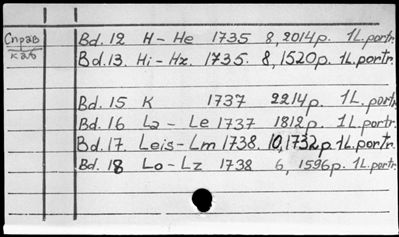 Справ каб
Bd. 12 H - He 1735 8, 2014p. 1L. portr.
Bd. 13. Hi - Hz. 1735. 8, 1520p. 1L. portr.
Bd. 15 K 1737 2214p. 1L. portr.
Bd. 16 La - Le 1737 1812p. 1L. portr.
Bd. 17. Leis - Lm 1738. 10, 1732p. 1L. portr.
Bd. 18 Lo - Lz 1738 6, 1596p. 1L. portr.